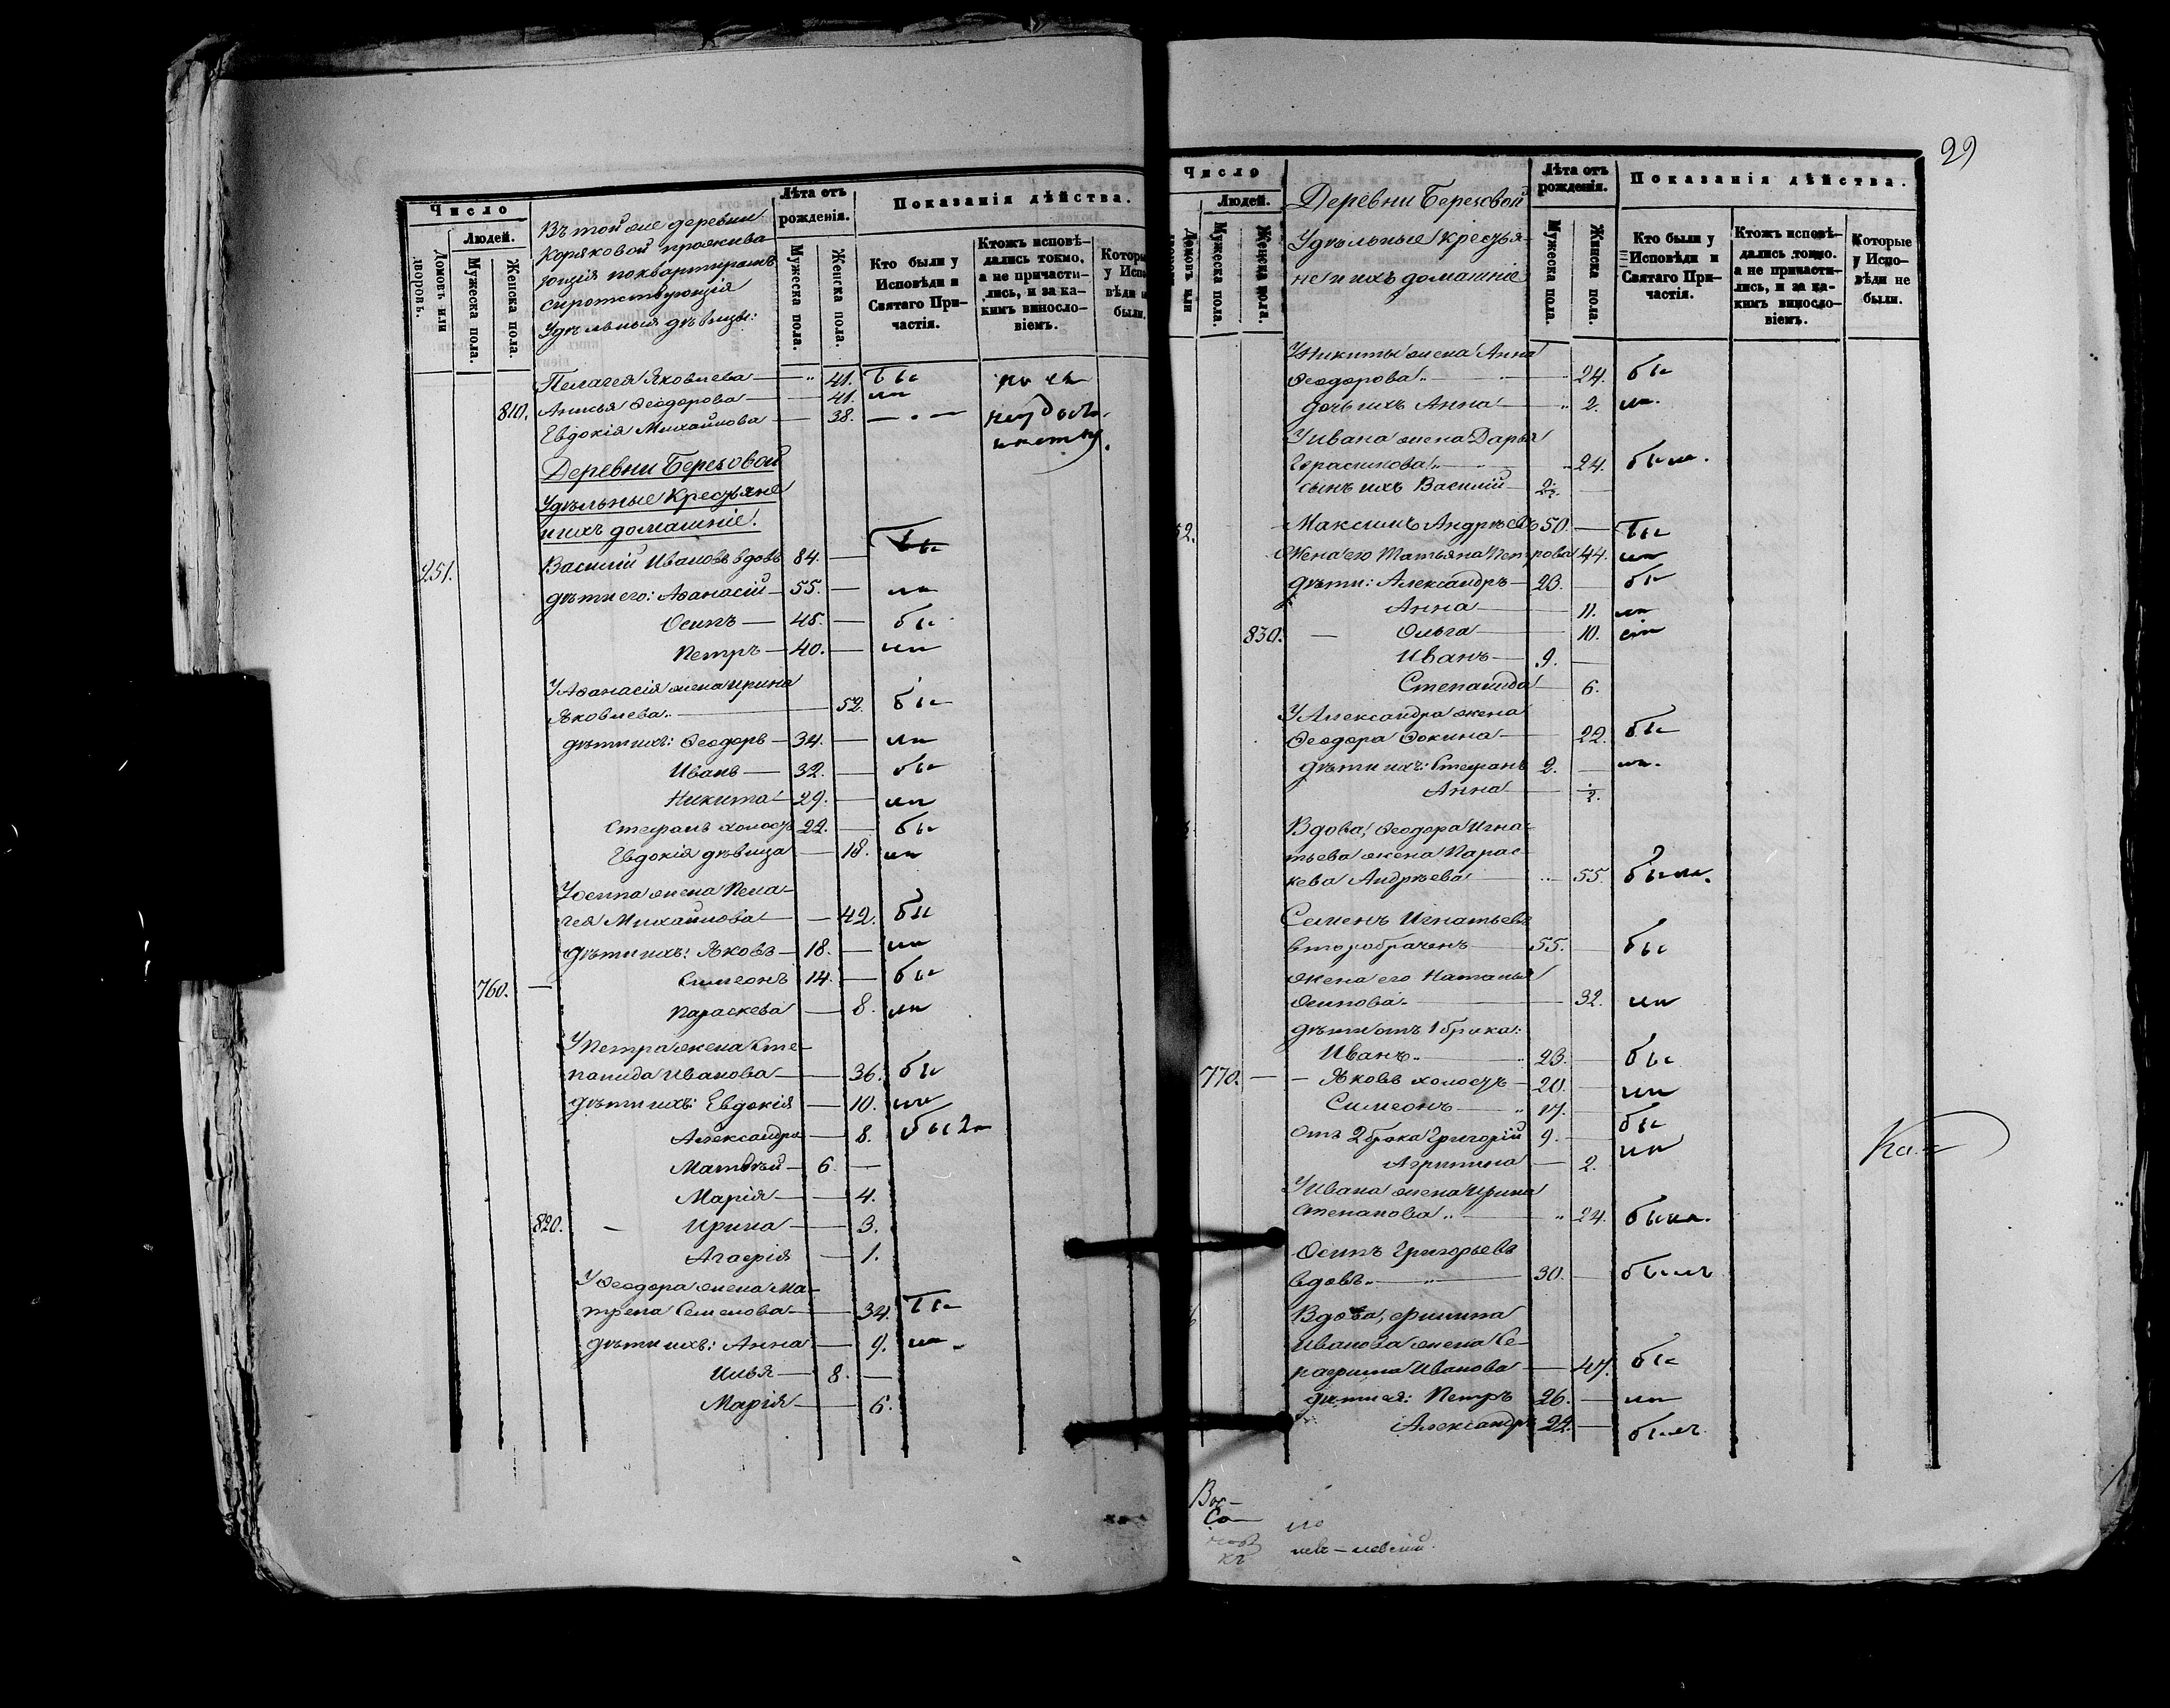 29
Число
Людей.
Домовъ или дворовъ.
Мужеска пола.
Женска пола.
Въ той же деревни
Коряковой прожива
ющія по квартирамъ
сиротствующія
Удѣльныя дѣвицы:
Лѣта отъ рожденія.
Мужеска пола.
Женска пола.
Показанія дѣйства.
Кто были у Исповѣди и Святаго Причастія.
Ктожъ исповѣдались токмо, а не причастились, и за какимъ винословіемъ.
Которы
у Испо
вѣди н
были.
Пелагея Яковлева — 41. бы
810. Анисья Ѳеодорова — 41. ли
Евдокія Михайлова — 38. — „ —
Деревни Березовой
Удѣльные Крестьяне
и ихъ домашніе.
251. Василій Ивановъ вдовъ 84. — бы
дѣти его: Аѳанасій — 55. — ли
Осипъ — 45. — бы
Петръ — 40. — ли
У Аѳанасія жена Ирина
Яковлева — 52. бы
дѣти ихъ: Ѳеодоръ — 34. — ли
Иванъ — 32. — бы
Никита — 29. — ли
Стефанъ холостъ 22. — бы
Евдокія дѣвица — 18. ли
У Осипа жена Пела-
гея Михайлова — 42. бы
дѣти ихъ: Яковъ — 18. — ли
760. — Симеонъ 14. — бы
Параскева — 8. ли
У Петра жена Сте-
панида Иванова — 36. бы
дѣти ихъ: Евдокія — 10. ли
Александра — 8. бы
Матвѣй — 6. —
Марія — 4.
820. — Ирина — 3.
Агафія — 1.
У Ѳеодора жена Ма-
трена Семенова — 34. бы
дѣти ихъ: Анна — 9. ли
Илья — 8. —
Марія — 6.
Число
Людей.
Домовъ или
Мужеска пола.
Женска пола.
Деревни Березовой
Удѣльные крестья-
не и ихъ домашніе
Лѣта отъ рожденія.
Мужеска пола.
Жинска пола.
Показанія дѣйства.
Кто были у Исповѣди и Святаго Причастія.
Ктожъ исповѣдались токмо. а не причастились, и за какимъ винословіемъ.
Которые у Исповѣди не были.
У Никиты жена Анна
Ѳеодорова — 24. бы
дочь ихъ Анна — 2. ли.
У Ивана жена Дарья
Герасимова — 24. были.
сынъ ихъ Василій —
2. Максимъ Андрѣевъ 50. — бы
жена его Татьяна Петрова 44. ли
дѣти: Александръ — 23. — бы
Анна — 11. ли
830. — Ольга — 10.
Иванъ — 9. —
Степанида — 6.
У Александра жена
Ѳеодора Ѳокина — 22. бы
дѣти ихъ: Стефанъ 2. — ли.
Анна —
Вдова, Ѳеодора Игна-
тьева жена Парас-
кева Андрѣева — 55. были.
Семенъ Игнатьевъ
второбраченъ — 55. — бы
жена его Наталья
Осипова — 32. ли
дѣти отъ 1 брака:
Иванъ — 23. — бы
770. — Яковъ холостъ — 20. — ли
Симеонъ — 17. — бы
отъ 2 брака Григорій 9. — ли
Агрипина — 2.
У Ивана жена Ирина
Степанова — 24. были.
Осипъ Григорьевъ
вдовъ — 30. — былъ
Вдова, Филипа
Иванова жена Се-
рафима Иванова — 47. бы
дѣти ея: Петръ 26. — ли
Александръ 22. — былъ